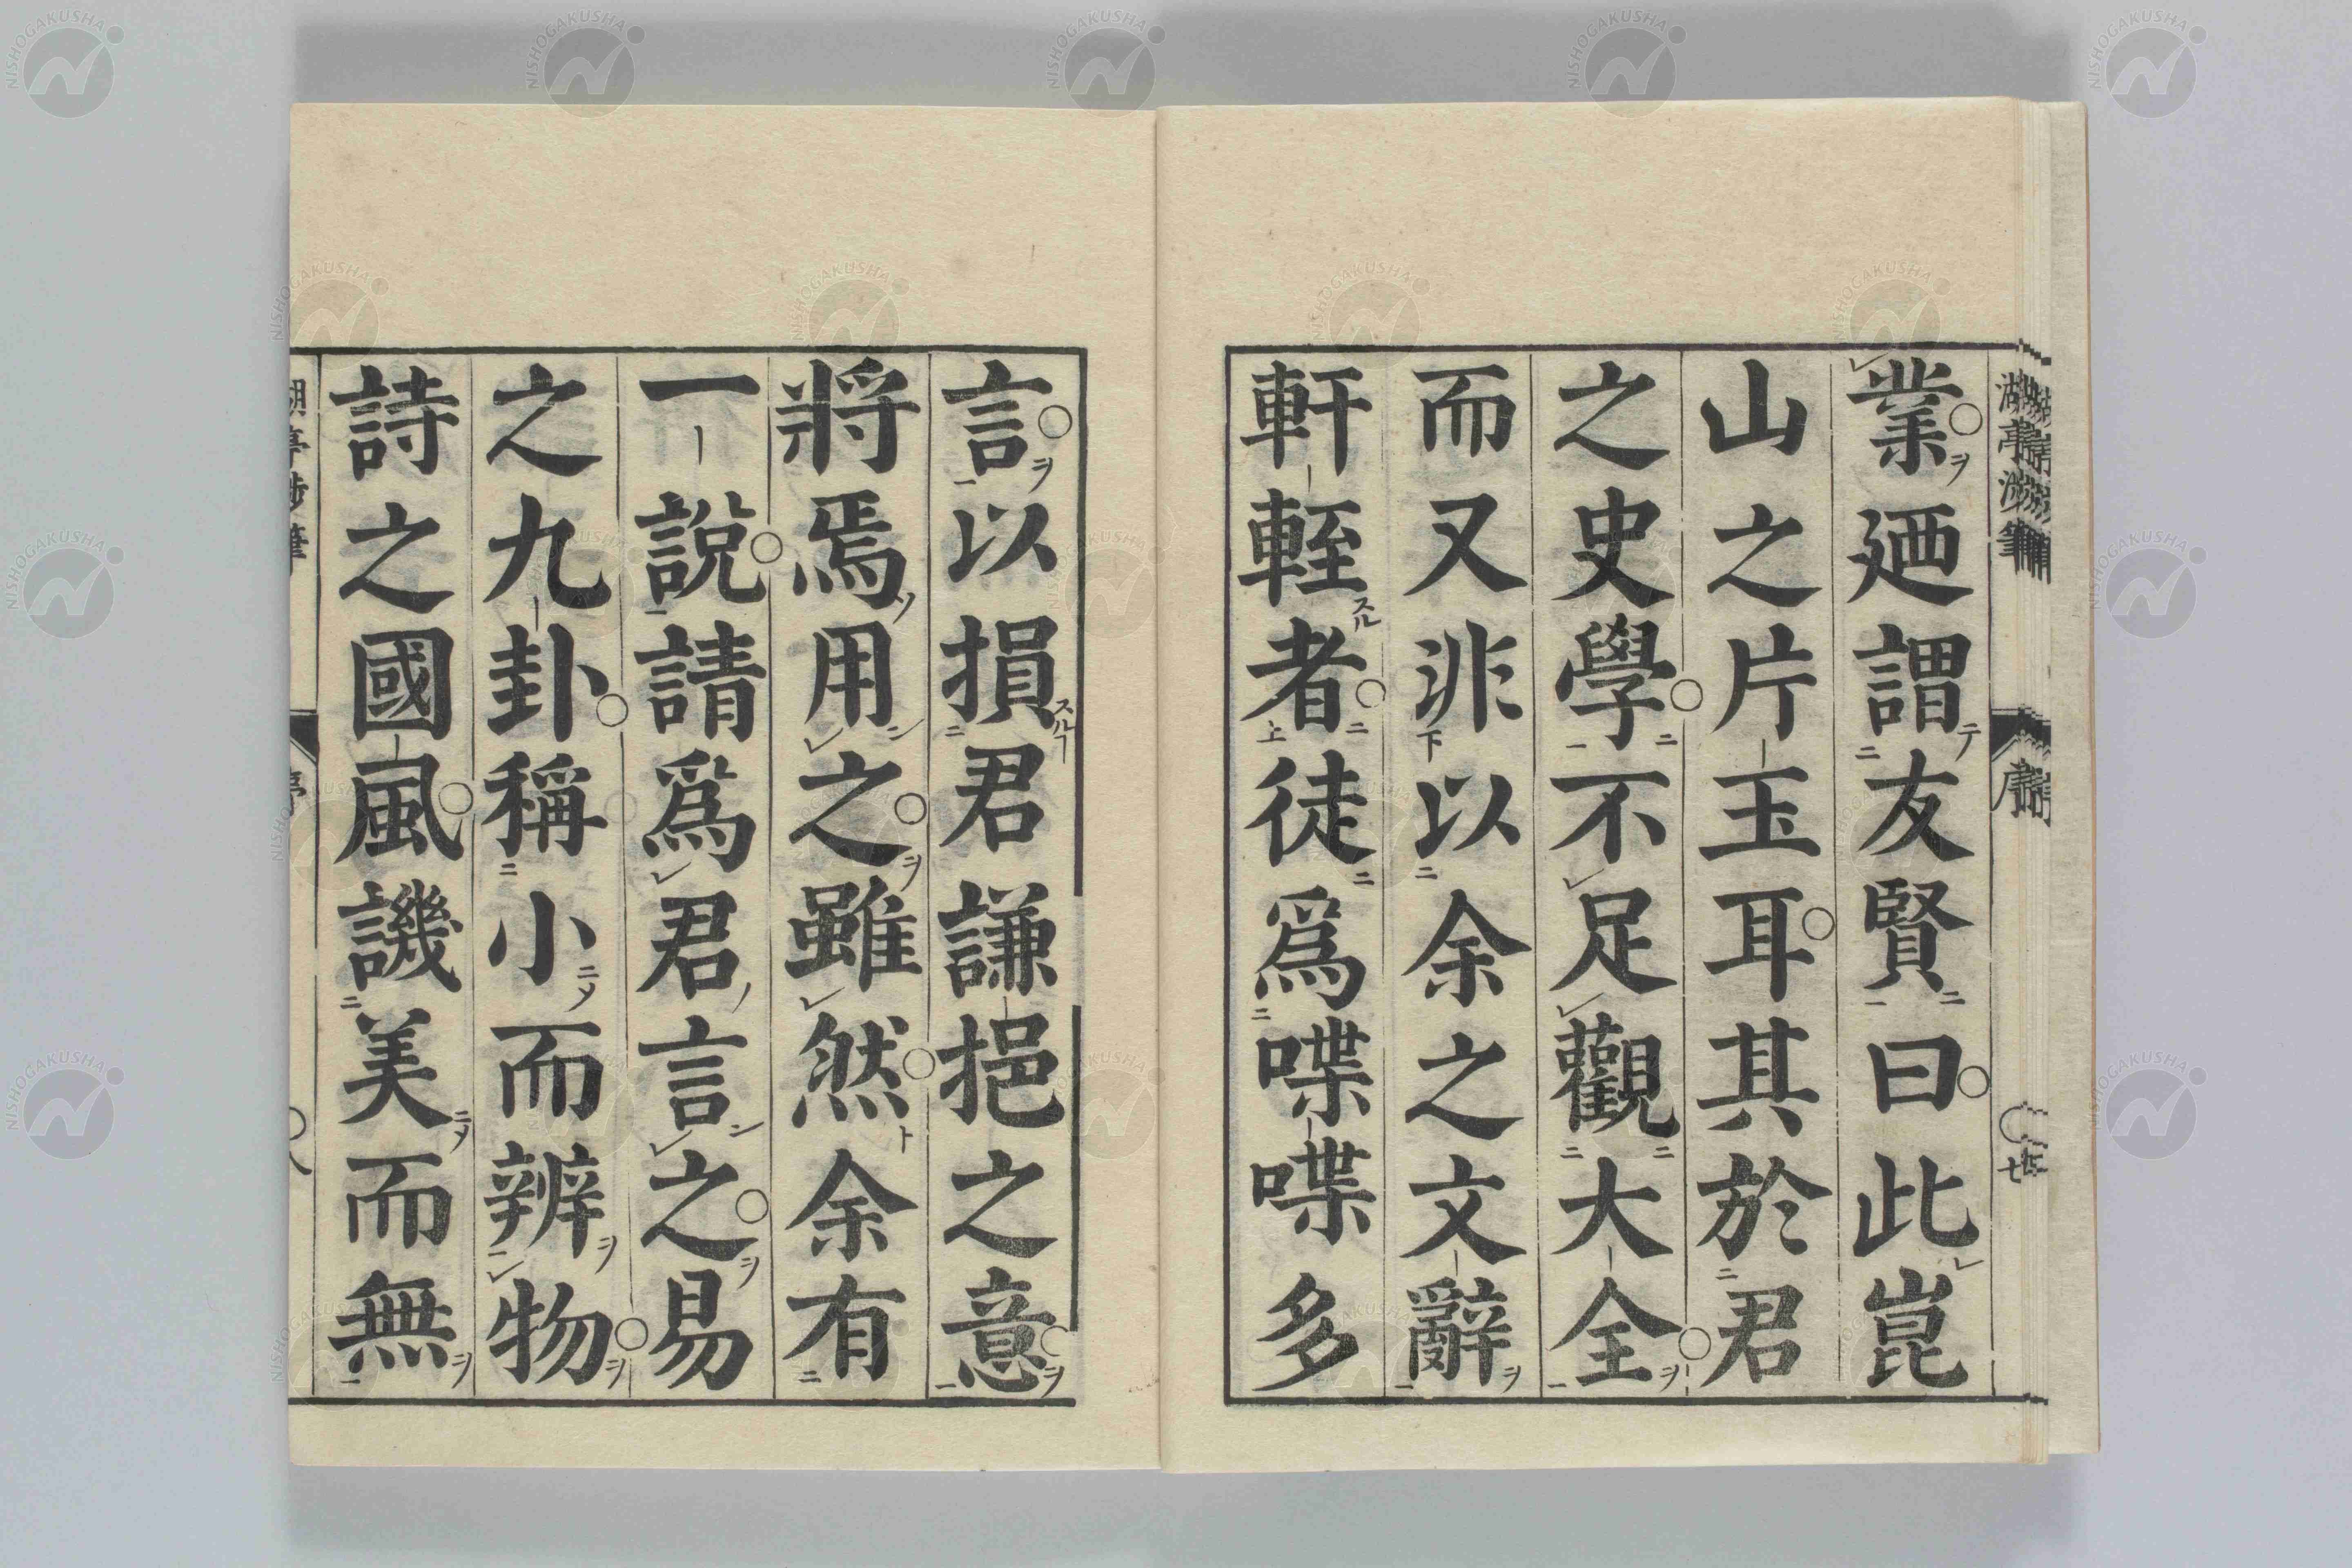 業廼謂友賢曰此崑
山之片玉耳其於君
之史學不足觀大全
而又非以余之文辭
軒輊者徒爲喋喋多
言以損君謙挹之意
將焉用之雖然余有
一說請爲君言之易
之九卦稱小而辨物
詩之國風譏美而無